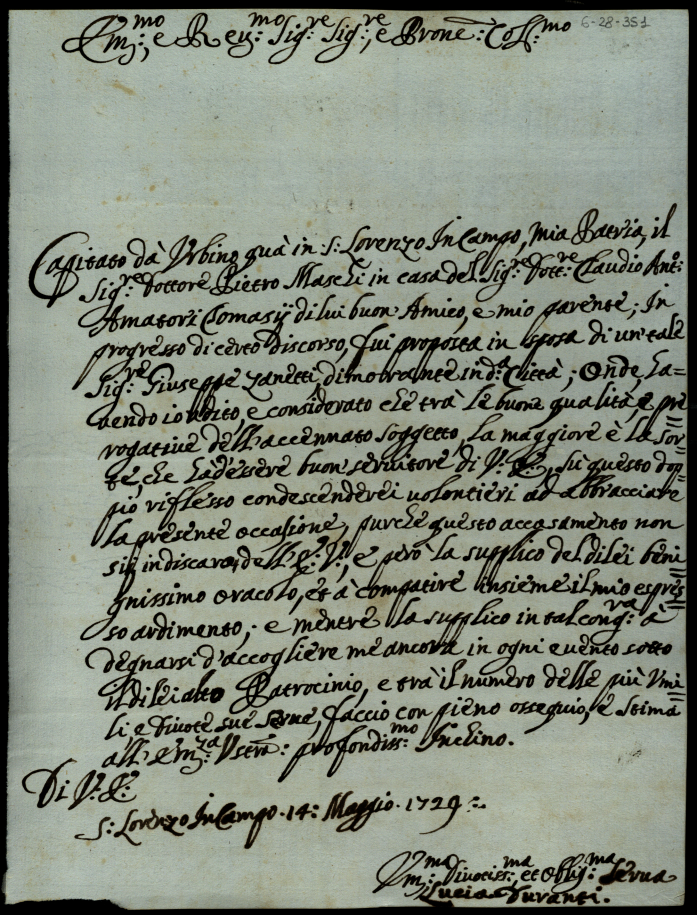 6-28-351
Em:mo, e Rev:mo Sig:re Sig:re, e Prone: Col:mo
Capitato dà Urbino quà in S: Lorenzo In Campo, mia Patria, il
Sig:re Dottore Pietro Maschi in casa del Sig:re Dott:re Claudio Ant:o
Amatori Tomasij di lui buon Amico, e mio parente; In
progresso di certo discorso, fui proposta in sposa di un tale
Sig:re Giuseppe Zanetti, dimorante in d:a Città; Onde, ha=
vendo io udito, e considerato che trà le buone qualità, e pre
rogative dell'accennato soggetto, la maggiore è la sor=
te che hà d'essere buon servitore di V: E:, sù questo dop=
pio riflesso condescenderei volontieri ad abbracciare
la presente occasione, purche questo accasamento non
sii indiscaro dell'E: V:, e però la supplico del di lei beni
gnissimo oracolo, et à compatire insieme il mio espres=
so ardimento; e mentre la supplico in tal cong:ra à
degnarsi d'accogliere me ancora in ogni evento sotto
il di lei alto Patrocinio, e trà il numero delle più Umi=
li e Divote sue serve, faccio con pieno ossequio, e stima
all'Em:za Vstra: profondiss:mo Inchino.
Di V: E:
S: Lorenzo In Campo. 14: Maggio. 1729:.
Um:ma Divotiss:ma et Obblig:ma Serva
Lucia Duranti.